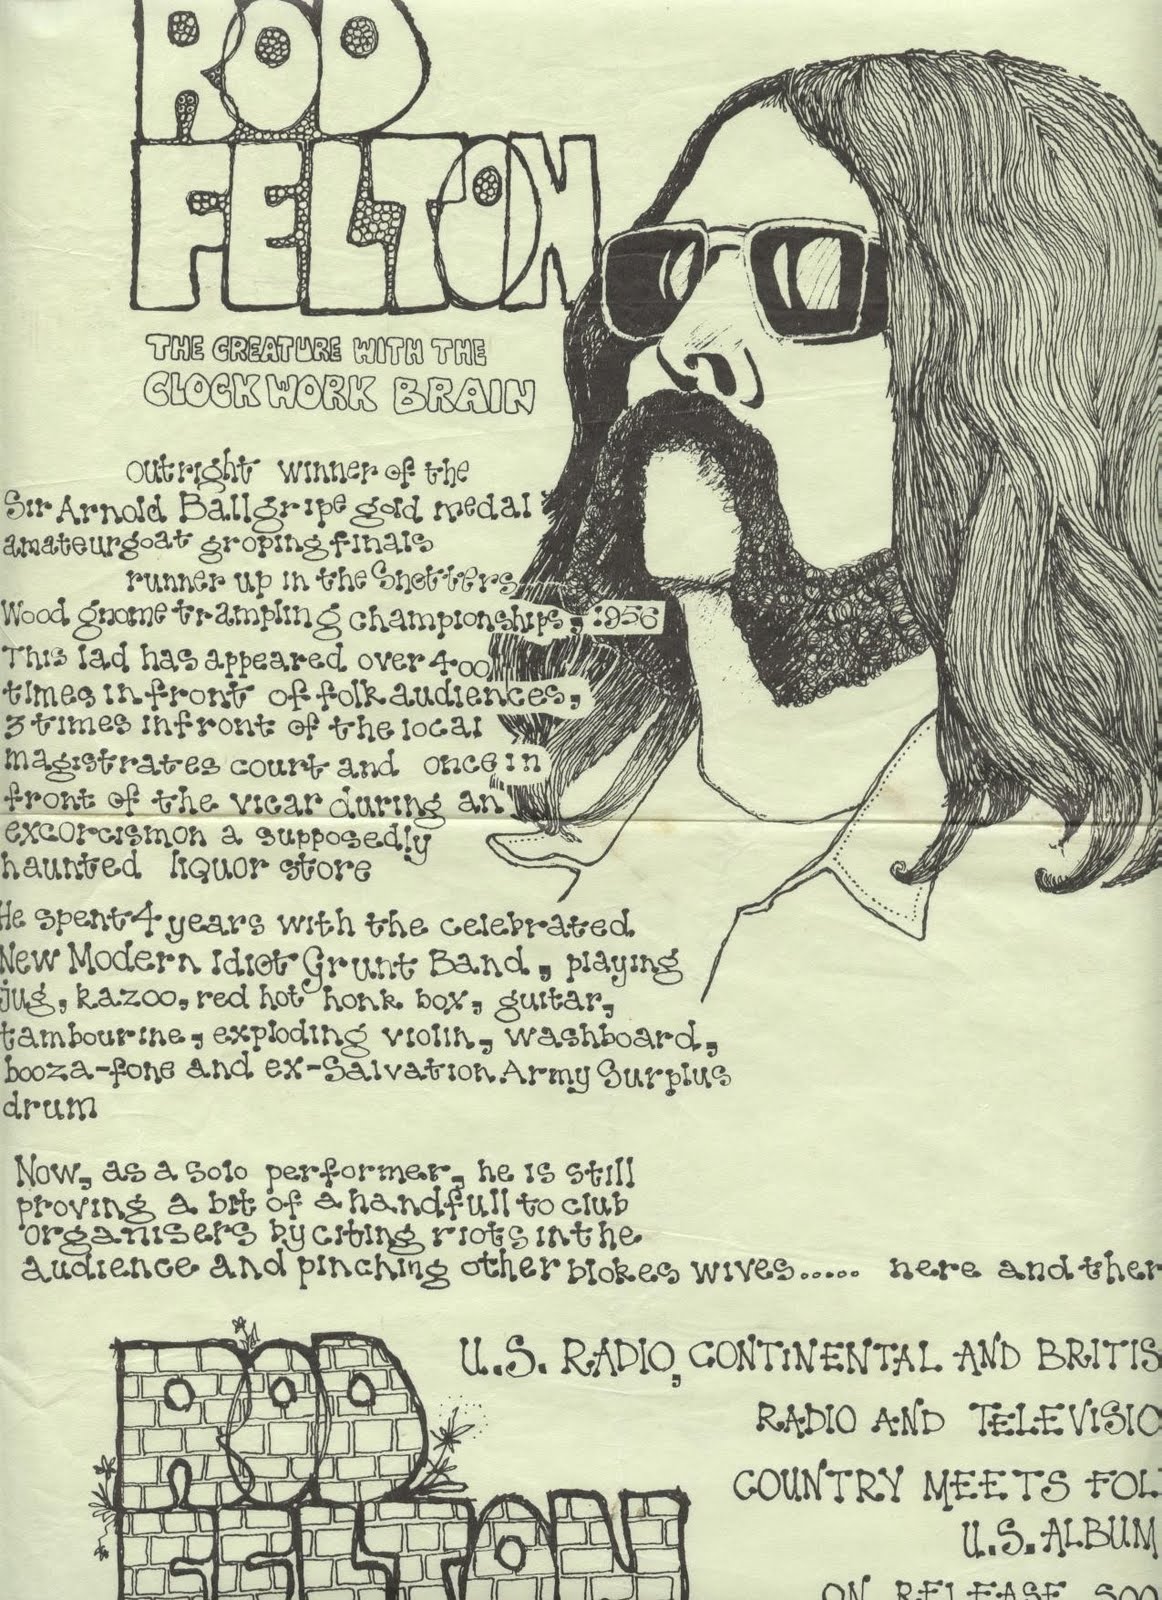 ROD
FELTON
THE CREATURE WITH THE
CLOCKWORK BRAIN
outright winner of the
Sir Arnold Ballgripe gold medal
amateurgoat groping finals
runner up in the Snotters
Wood gnome trampling championships, 1956
This lad has appeared over 400
times in front of folk audiences,
3 times in front of the local
magistrates court and once in
front of the vicar during an
excorcismon a supposedly
haunted liquor store
He spent 4 years with the celebrated
New Modern Idiot Grunt Band, playing
jug, kazoo, red hot honk box, guitar,
tambourine, exploding violin, washboard,
booza-fone and ex-Salvation Army Surplus
drum
Now, as a solo performer, he is still
proving a bit of a handfull to club
organisers by citing riots in the
audience and pinching other blokes wives..... here and ther
U.S. RADIO, CONTINENTAL AND BRITIS
RADIO AND TELEVISIO
COUNTRY MEETS FOL
U.S. ALBUM
ON RELEASE SOO
ROD
FELTON